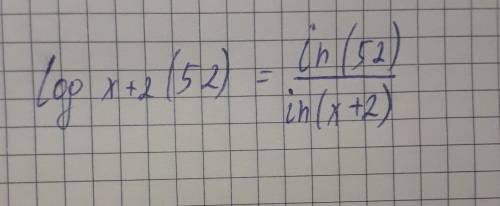 log x+2 (52) = in(52) / in(x+2)